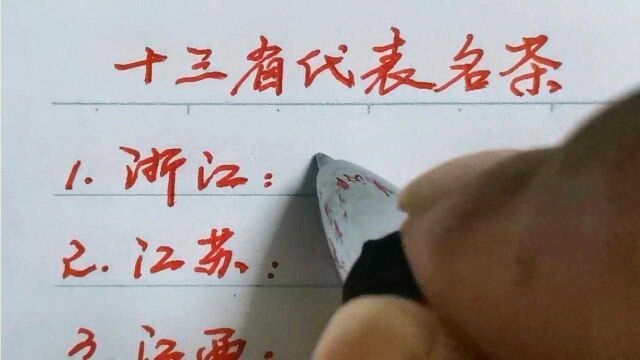 十三省代表名茶
1. 浙江:
2. 江苏:
3. 江西: